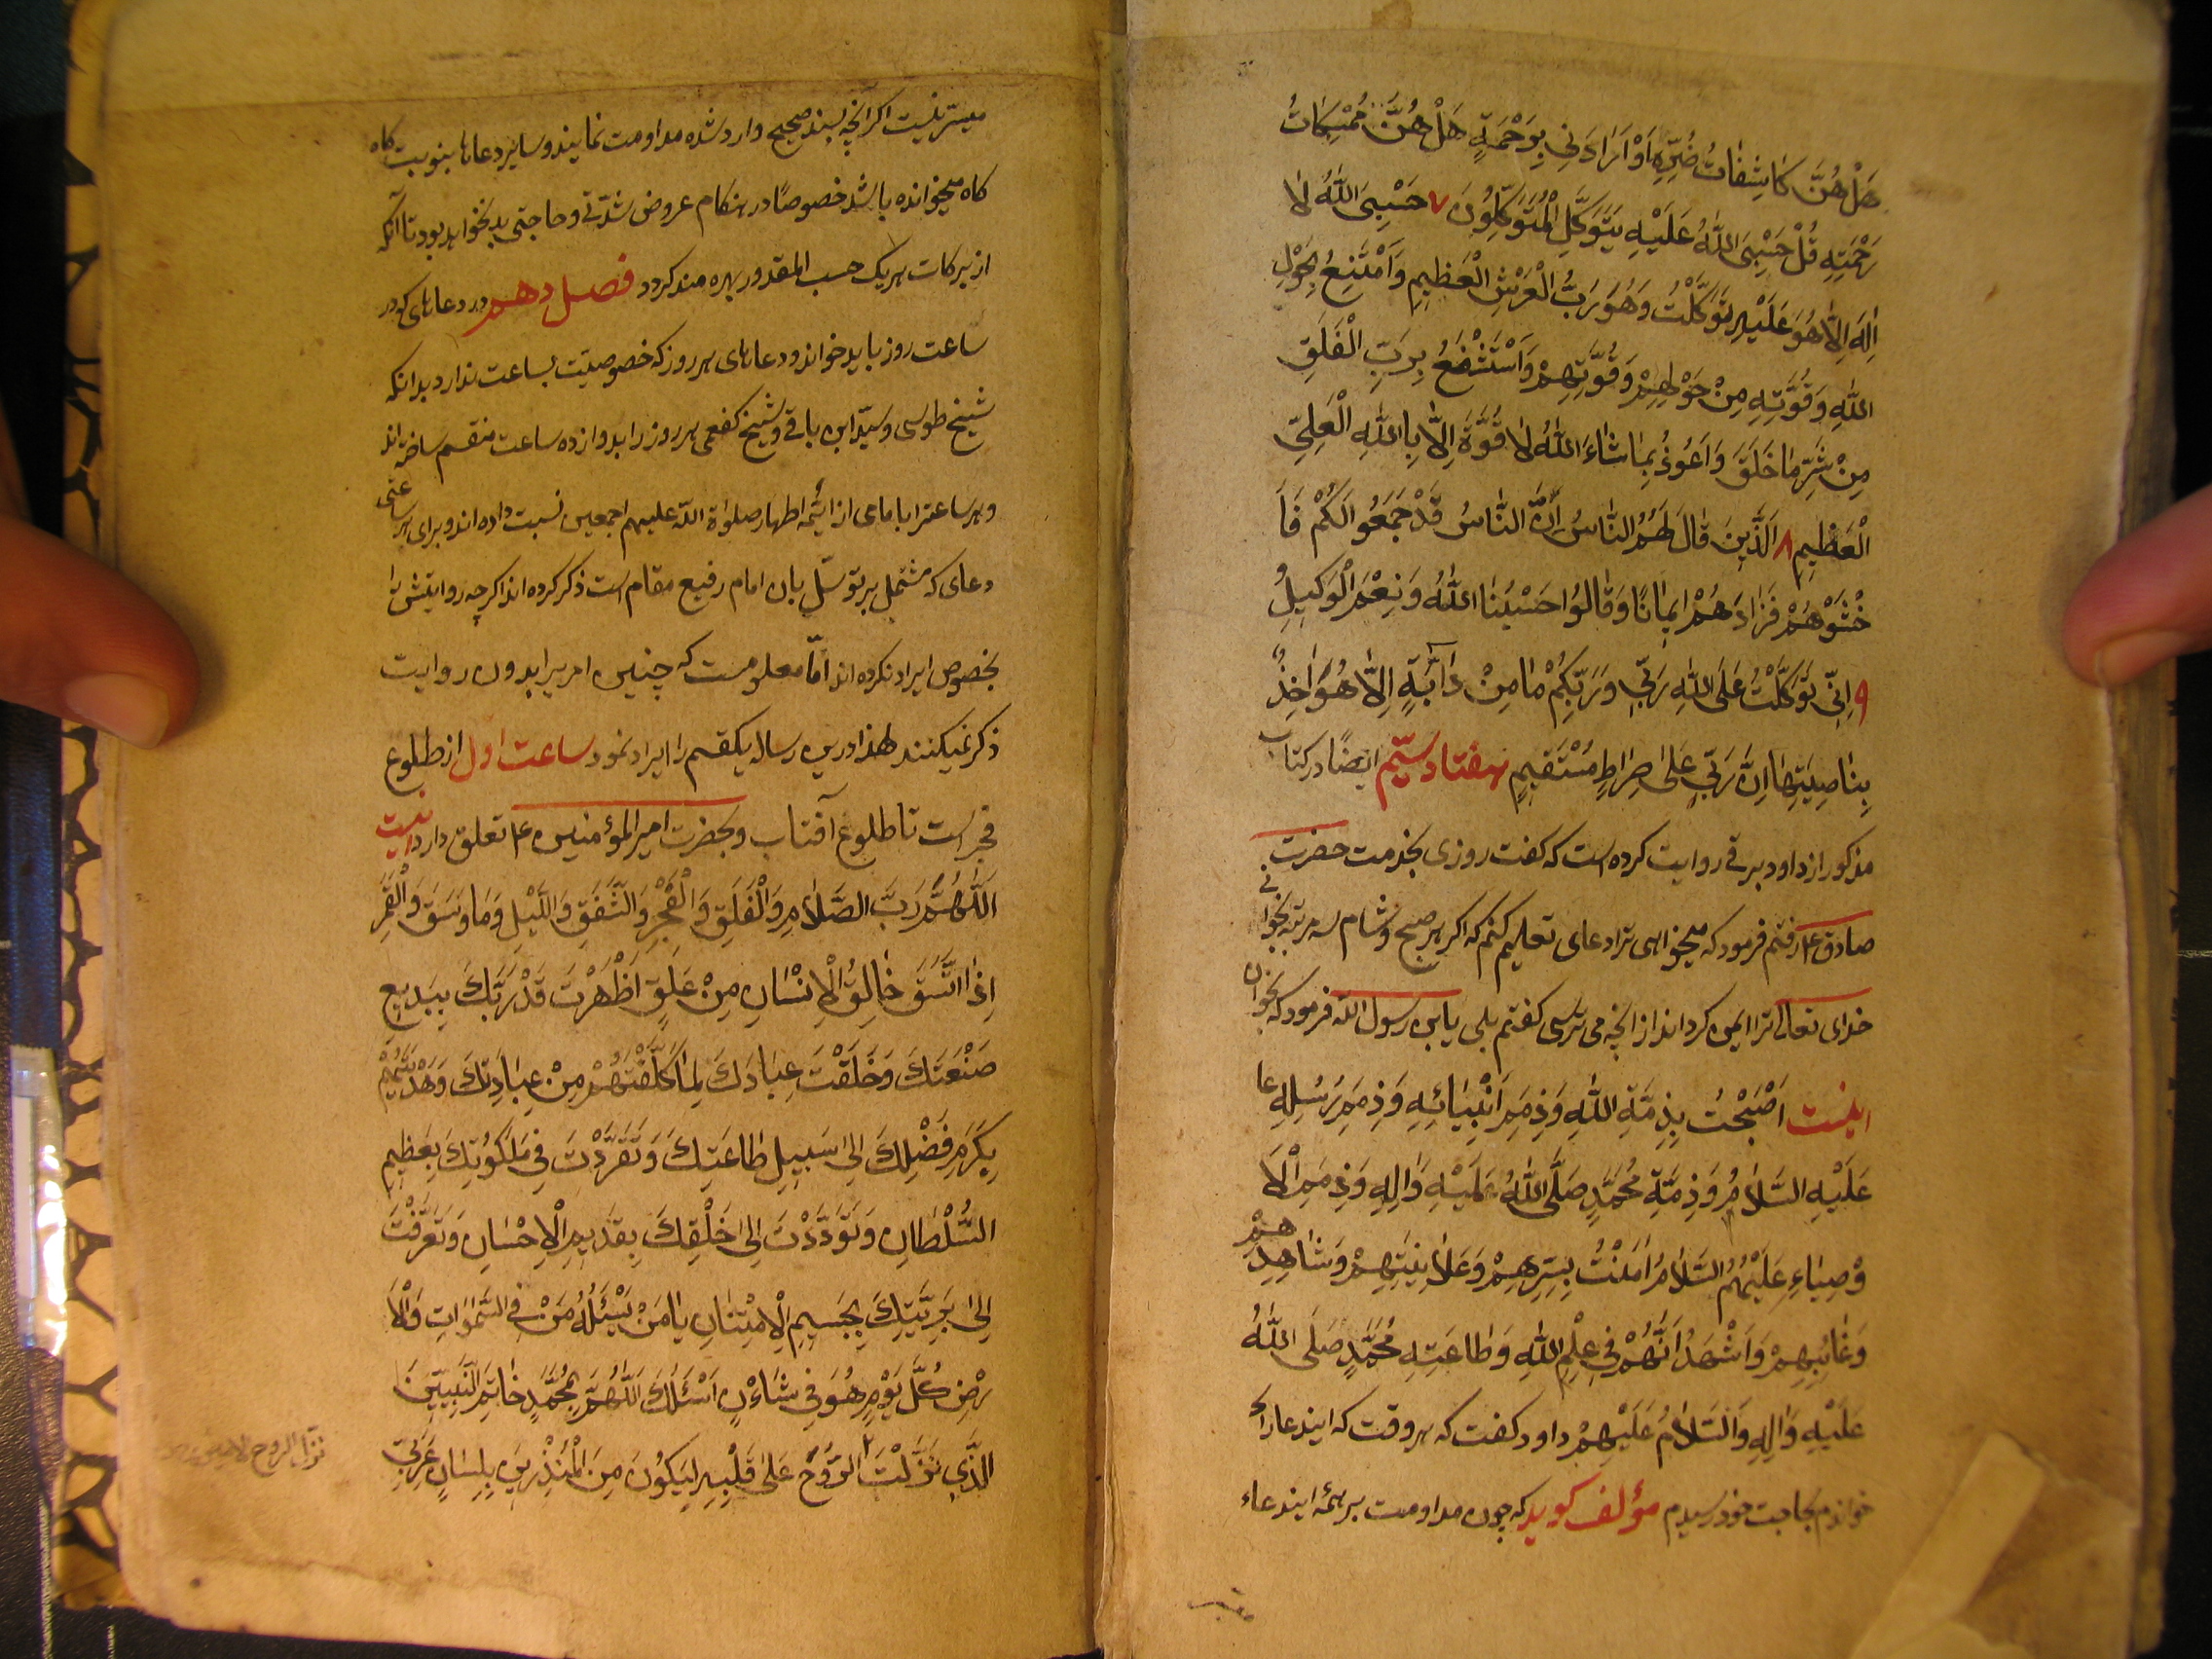 هَلْ هُنَّ كَاشِفَاتُ ضُرِّهِ اَوْ اَرَادَنِي بِرَحْمَةٍ هَلْ هُنَّ مُمْسِكَاتُ
رَحْمَتِهِ قُلْ حَسْبِيَ اللّٰهُ عَلَيْهِ يَتَوَكَّلِ الْمُتَوَكِّلُونَ ۷ حَسْبِيَ اللّٰهُ لَا
اِلٰهَ اِلَّا هُوَ عَلَيْهِ تَوَكَّلْتُ وَهُوَ رَبُّ الْعَرْشِ الْعَظِيمِ وَاَمْتَنِعُ بِحَوْلِ
اللّٰهِ وَقُوَّتِهِ مِنْ حَوْلِهِمْ وَقُوَّتِهِمْ وَاَسْتَشْفِعُ بِرَبِّ الْفَلَقِ
مِنْ شَرِّ مَا خَلَقَ وَاَعُوذُ بِمَا شَاءَ اللّٰهُ لَا قُوَّةَ اِلَّا بِاللّٰهِ الْعَلِيِّ
الْعَظِيمِ ۸ اَلَّذِينَ قَالَ لَهُمُ النَّاسُ اِنَّ النَّاسَ قَدْ جَمَعُوا لَكُمْ فَا
خْشَوْهُمْ فَزَادَهُمْ اِيمَانًا وَقَالُوا حَسْبُنَا اللّٰهُ وَنِعْمَ الْوَكِيلُ
۹ اِنِّي تَوَكَّلْتُ عَلَى اللّٰهِ رَبِّي وَرَبِّكُمْ مَا مِنْ دَابَّةٍ اِلَّا هُوَ اٰخِذٌ
بِنَاصِيَتِهَا اِنَّ رَبِّي عَلٰى صِرَاطٍ مُسْتَقِيمٍ هفتاد سیّم ایضًا در کتاب
مذکور از داود برقی روایت کرده است که کفت روزی بخدمت حضرت
صادق ع رفتم فرمود که میخواهی ترا دعای تعلیم کنم که اکر هر صبح و شام سه مرتبه بخوانی
خدای تعالی ترا ایمن کرداند از انچه می ترسی کفتم بلی یابن رسول الله فرمود که بخوان
اینست اَصْبَحْتُ بِذِمَّةِ اللّٰهِ وَذِمَمِ اَنْبِيَائِهِ وَذِمَمِ رُسُلِهِ عا
عَلَيْهِ السَّلَامُ وَذِمَّةِ مُحَمَّدٍ صَلَّى اللّٰهُ عَلَيْهِ وَاٰلِهِ وَذِمَمِ الْاَ
وْصِيَاءِ عَلَيْهُمُ السَّلَامُ اٰمَنْتُ بِسِرِّهِمْ وَعَلَانِيَتِهِمْ وَشَاهِدِهِمْ
وَغَائِبِهِمْ وَاَشْهَدُ اَنَّهُمْ فِي عِلْمِ اللّٰهِ وَطَاعَتِهِ مُحَمَّدٍ صَلَّى اللّٰهُ
عَلَيْهِ وَاٰلِهِ وَالسَّلَامُ عَلَيْهِمْ داود کفت که هر وقت که ایندعا را
خواندم بحاجت خود رسیدم مؤلف کوید که چون مداومت بر همهٔ ایندعاء
میسّر نیست اکر انچه بسند صحیح وارد شده مداومت نمایند و سایر دعاها بنوبت کاه
کاه میخوانده باشد خصوصًا در هنکام عروض شدّتی و حاجتی بد نخواهد بود تا آنکه
از برکات هریک حسب المقدور بهره مند کردد فصل دهم در دعاهای که در
ساعت روز باید خواند و دعاهای هر روز که خصوصیّت بساعت ندارد بدانکه
شیخ طوسی و سیّد ابن باقی و شیخ کفعمی هر روز را بدوازده ساعت منقسم ساخته اند
و هر ساعترا بامامی از ائمه اطهار صلواة الله علیهم اجمعین نسبت داده اند و برای هر ساعتی
دعای که مشتمل بر توسّل بان امام رفیع مقام است ذکر کرده اند اکرچه روایتش را
بخصوص ایراد نکرده اند امّا معلومست که چنین امریرا بدون روایت
ذکر نمیکنند لهذا درین رساله یکقسم را ایراد نمود ساعت اول از طلوع
فجر است تا طلوع آفتاب و بحضرت امیر المؤمنین ع تعلق دارد اینست
اَللّٰهُمَّ رَبَّ الظَّلَامِ وَالْفَلَقِ وَالْفَجْرِ وَالشَّفَقِ وَاللَّيْلِ وَمَا وَسَقَ وَالْقَمَرِ
اِذَا اتَّسَقَ خَالِقَ الْاِنْسَانِ مِنْ عَلَقٍ اَظْهَرْتَ قُدْرَتَكَ بِبَدِيعِ
صَنْعَتِكَ وَخَلَقْتَ عِبَادَكَ لِمَا كَلَّفْتَهُمْ مِنْ عِبَادَتِكَ وَهَدَيْتَهُمْ
بِكَرَمِ فَضْلِكَ اِلٰى سَبِيلِ طَاعَتِكَ وَتَفَرَّدْتَ فِي مَلَكُوتِكَ بِعَظِيمِ
السُّلْطَانِ وَتَوَدَّدْتَ اِلٰى خَلْقِكَ بِقَدِيمِ الْاِحْسَانِ وَتَعَرَّفْتَ
اِلٰى بَرِيَّتِكَ بِجَسِيمِ الْاِمْتِنَانِ يَا مَنْ يَسْئَلُهُ مَنْ فِي السَّمٰوَاتِ وَالْاَ
رْضِ كُلَّ يَوْمٍ هُوَ فِي شَاْنٍ اَسْئَلُكَ اللّٰهُمَّ بِمُحَمَّدٍ خَاتَمِ النَّبِيِّينَ
الَّذِي نَزَلْتَ الرُّوحَ عَلٰى قَلْبِهِ لِيَكُونَ مِنَ الْمُنْذِرِينَ بِلِسَانٍ عَرَبِيٍّ
نزل الروح الامین